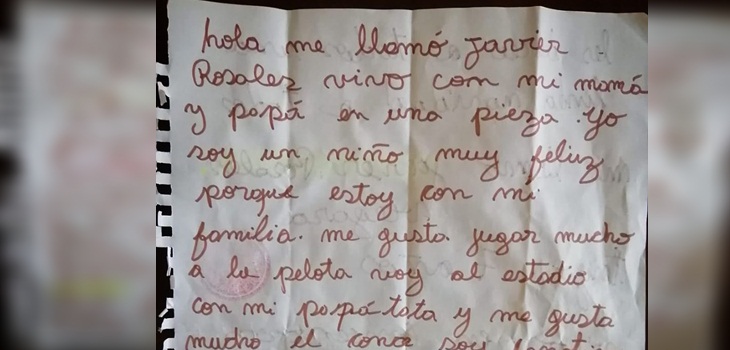 hola me llamó javier
Rosales vivo con mi mamá
y papá en una pieza. yo
soy un niño muy feliz
porque estoy con mi
familia. me gusta. jugar mucho
a la pelota voy al estadio
con mi papá tata y me gusta
mucho el